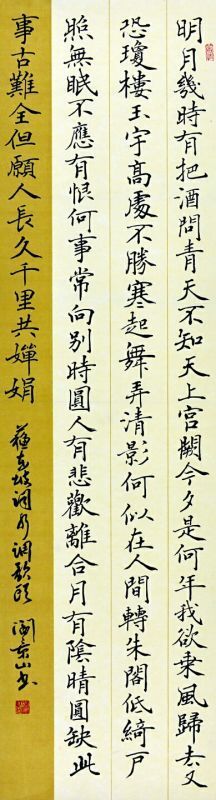 明月幾時有把酒問青天不知天上宮闕今夕是何年我欲乘風歸去又
恐瓊樓玉宇高處不勝寒起舞弄清影何似在人間轉朱閣低綺戶
照無眠不應有恨何事常向別時圓人有悲歡離合月有陰晴圓缺此
事古難全但願人長久千里共嬋娟
蘇東坡词水调歌頭